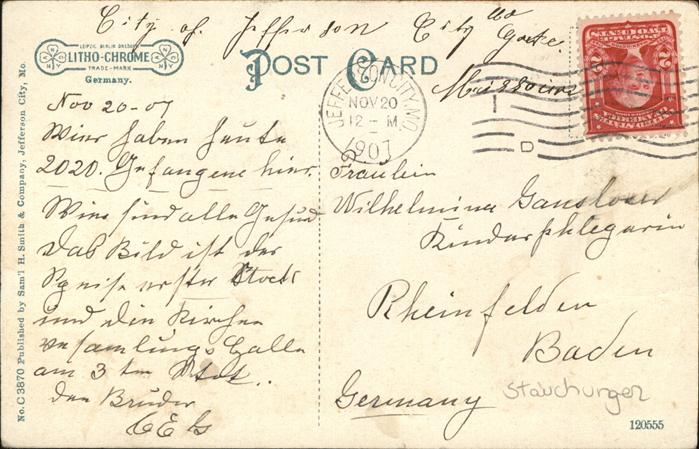 City of Jefferson City Mo
Missouri
LEIPZIG BERLIN DRESDEN
LITHO-CHROME
TRADE-MARK
Germany.
POST CARD
JEFFERSON CITY, MO.
NOV 20
12-M
1907
Nov 20-07
Wier haben heute
2020. Gefangene hier.
Wier sind alle Gesund
das Bild ist der
Speise erster Stock
und die Kirchen
versamlungs Halle
am 3 ten
den Bruder
Fräulein
Wilhelmina
Rheinfelden
Baden
Germany
No. C 3870 Published by Sam'l H. Smith & Company, Jefferson City, Mo.
120555